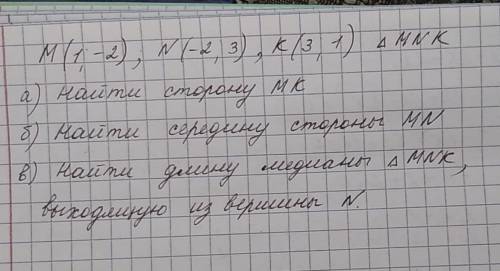 M(1;-2), N(-2,3), K(3,1) △MNK
а) Найти сторону MK
б) Найти середину стороны MN
в) Найти длину медианы △MNK,
выходящую из вершины N.